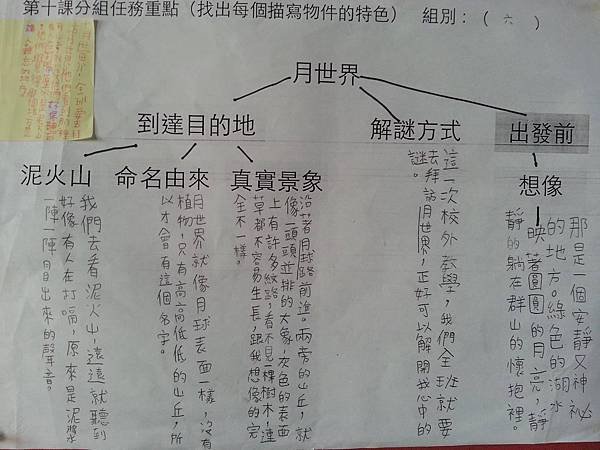 第十課分組任務重點（找出每個描寫物件的特色） 組別：（ 六 ）
月世界
到達目的地
解謎方式
出發前
泥火山
命名由來
真實景象
想像
那是一個安靜又神祕
的地方。綠色的湖水
映著圓圓的月亮，靜
靜的躺在群山的懷抱裡。
這一次校外教學，我們全班就要
去拜訪月世界，正好可以解開我心中的
謎。
沿著月球路前進。兩旁的山丘，就
像一頭頭並排的大象，灰色的表面
上有許多紋路，看不見一棵樹木，連
草都不容易生長，跟我想像的完
全不一樣。
月世界就像月球表面一樣，沒有
植物，只有高高低低的山丘，所
以才會有這個名字。
我們去看泥火山，遠遠就聽到
好像有人在打嗝，原來是泥漿
一陣一陣冒出來的聲音。